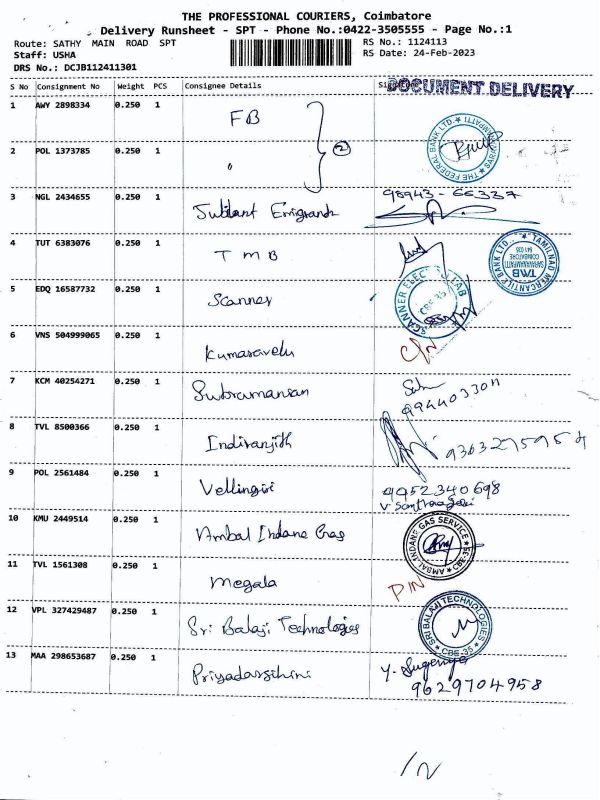 THE PROFESSIONAL COURIERS, Coimbatore
Delivery Runsheet - SPT - Phone No.:0422-3505555 - Page No.:1
Route: SATHY MAIN ROAD SPT
RS No.: 1124113
Staff: USHA
RS Date: 24-Feb-2023
DRS No.: DCJB112411301
S No Consignment No Weight PCS Consignee Details
DOCUMENT DELIVERY
1 AWY 2898334 0.250 1 FB
THE FEDERAL BANK LTD.
2 POL 1373785 0.250 1 "
2
3 NGL 2434655 0.250 1 Jubilant Emigrands
98943-66337
4 TUT 6383076 0.250 1 TMB
TAMILNAD MERCANTILE BANK LTD.
TMB
COIMBATORE
641 035
5 EDQ 16587732 0.250 1 Scanner
CBE-35
6 VNS 504999065 0.250 1 Kumaravelu
C/N
7 KCM 40254271 0.250 1 Subramanian
9944033011
8 TVL 8500366 0.250 1 Indiranjith
9363275954
9 POL 2561484 0.250 1 Vellingiri
9952340698
10 KMU 2449514 0.250 1 Ambal Indane Gas
AMBAL INDANE GAS SERVICE
CBE-35
11 TVL 1561308 0.250 1 Megala
P/N
12 VPL 327429487 0.250 1 Sri Balaji Technologies
SRI BALAJI TECHNOLOGIES
CBE-35
13 MAA 298653687 0.250 1 Priyadarsihini
Y. Sugeniya
9629704958
/N